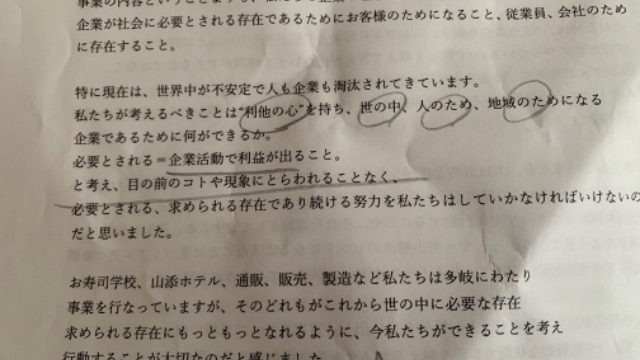 企業が社会に必要とされる存在であるためにお客様のためになること、従業員、会社のため
に存在すること。
特に現在は、世界中が不安定で人も企業も淘汰されてきています。
私たちが考えるべきことは“利他の心”を持ち、世の中、人のため、地域のためになる
企業であるために何ができるか。
必要とされる＝企業活動で利益が出ること。
と考え、目の前のコトや現象にとらわれることなく、
必要とされる、求められる存在であり続ける努力を私たちはしていかなければいけないの
だと思いました。
お寿司学校、山添ホテル、通販、販売、製造など私たちは多岐にわたり
事業を行なっていますが、そのどれもがこれから世の中に必要な存在
求められる存在にもっともっとなれるように、今私たちができることを考え
行動することが大切なのだと感じました